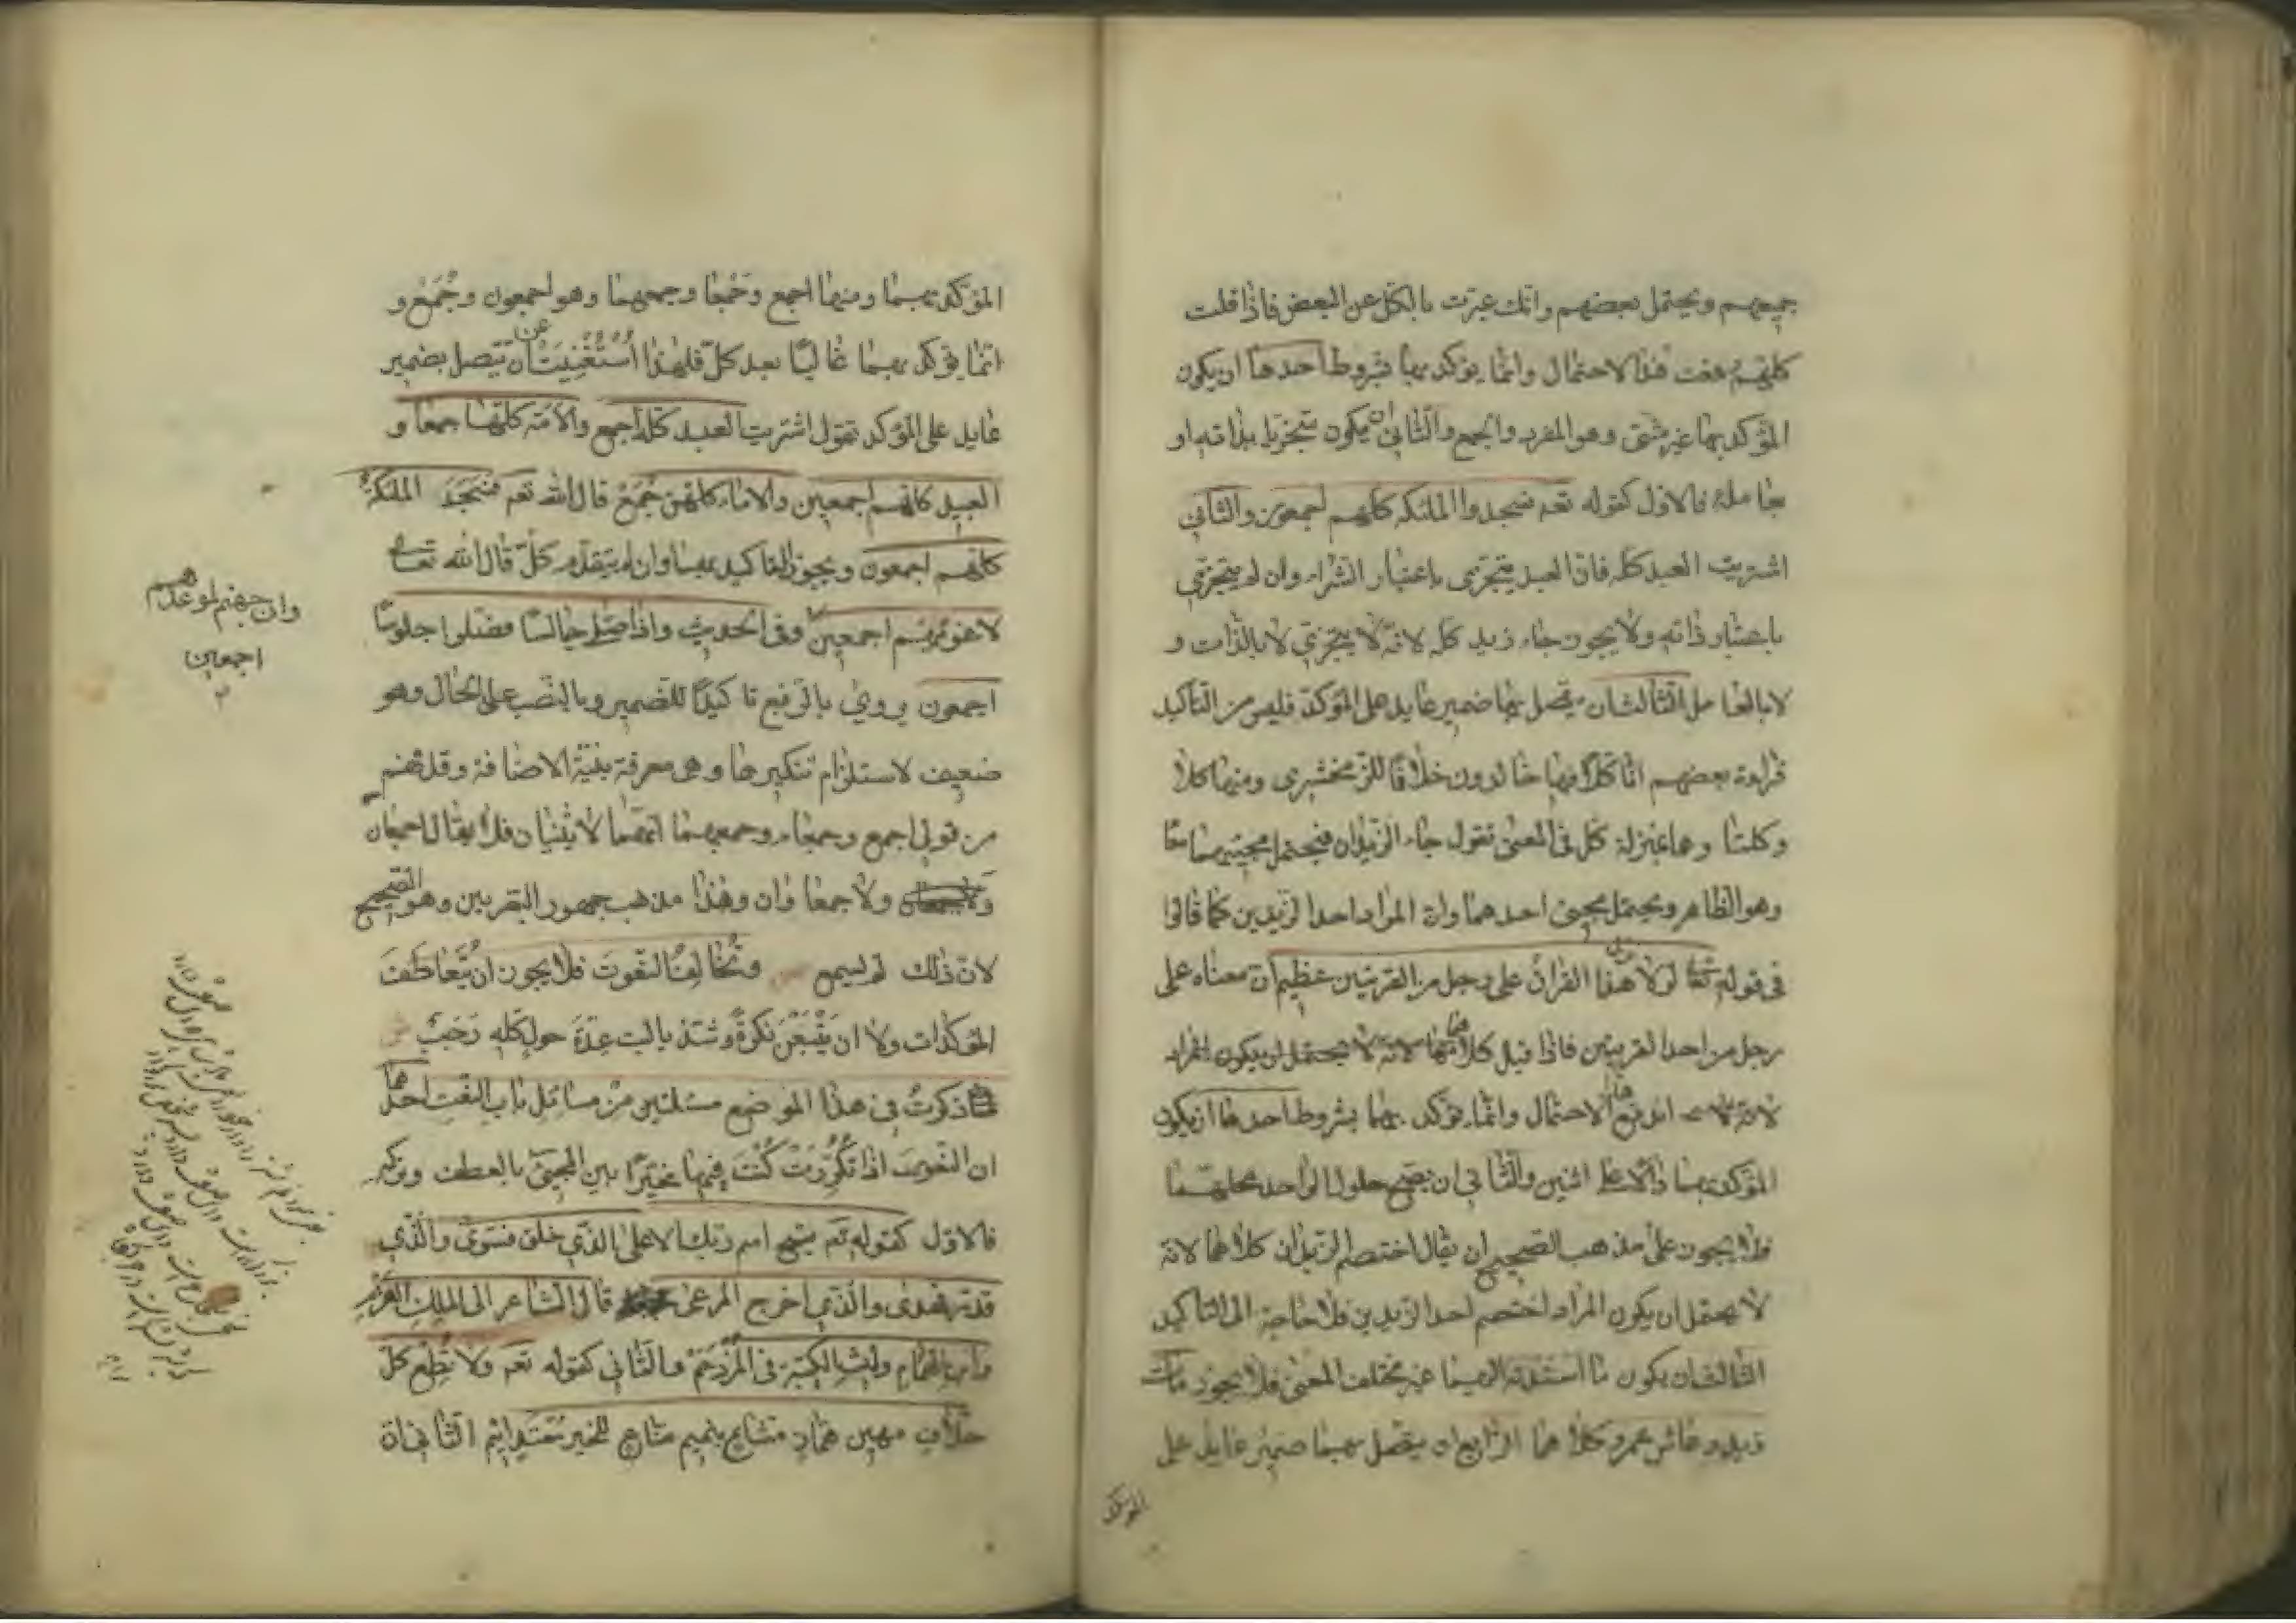 جميعهم ويحتمل بعضهم وانك عبرت بالكل عن البعض فاذا قلت
كلهم رفعت هذا الاحتمال وانما يؤكد بها بشروط احدها ان يكون
المؤكد بها غير مثنى وهو المفرد والجمع والثاني ان يكون متجزيا بذاته او
بعامله فالاول كقوله تعه فسجد الملئكه كلهم اجمعون والثاني
اشتريت العبد كله فان العبد يتجزى باعتبار الشراء وان لم يتجزى
باعتبار ذاته ولا يجوز جاء زيد كله لانه لا يتجزى لا بالذات و
لا بالعامل الثالث ان يتصل بها ضمير عايد على المؤكد فليس من التاكيد
قراءة بعضهم انا كلا فيها خالدون خلافا للزمخشرى ومنها كلا
وكلتا وهما بمنزلة كل فى المعنى تقول جاء الزيدان فيحتمل مجيئهما معا
وهو الظاهر ويحتمل مجيئ احدهما وان المراد احد الزيدين كما قالوا
فى قوله تعا لولا نزل هذا القران على رجل من القريتين عظيم ان معناه على
رجل من احد القريتين فاذا قيل كلاهما لا يحتمل ان يكون المراد
اندفع الاحتمال وانما يؤكد بهما بشروط احدها ان يكون
المؤكد بهما دالا على اثنين والثاني ان يصح حلول الواحد محلهما
فلا يجوز على مذهب الصحيح ان يقال اختصم الزيدان كلاهما لانه
لا يحتمل ان يكون المراد اختصم احد الزيدين فلا حاجة الى التاكيد
الثالث ان يكون ما اسندته اليهما غير مختلف المعنى فلا يجوز مات
زيد وعاش عمرو كلاهما الرابع ان يتصل بهما ضمير عايد على
المؤكد
المؤكد بهما ومنها اجمع وجمعا وجمعهما وهو اجمعون وجُمَع و
انما يؤكد بهما غالبا بعد كل فلهذا استغنيت عن ان يتصل بضمير
عايد على المؤكد تقول اشتريت العبد كله اجمع والامة كلها جمعا و
العبيد كلهم اجمعين والاماء كلهن جُمَع قال الله تعه فسجد الملئكة
كلهم اجمعون ويجوز التاكيد بهما وان لم يتقدم كل قال الله تعالى
لاغوينهم اجمعين وفى الحديث واذا صلى جالسا فصلوا جلوسا
اجمعون يروي بالرفع تاكيدا للضمير وبالنصب على الحال وهو
ضعيف لاستلزام تنكيرها وهى معرفة بنية الاضافة وقد فهم
من قولي اجمع وجمعاء وجمعهما انهما لا يثنيان فلا يقال اجمعان
ولا جمعاوان وهذا مذهب جمهور البصريين وهو الصحيح
لان ذلك لم يسمع وتخالف النعوت فلا يجوز ان تتعاطف
المؤكدات ولا ان يتبعن نكرة وشذ ياليت عدة حول كله رجب
ذكرت فى هذا الموضع مسئلتين من مسائل باب النعت احدهما
ان النعوت اذا تكررت كنت فيها مخيرا بين المجئ بالعطف وتركه
فالاول كقوله تعه سبح اسم ربك الاعلى الذي خلق فسوى والذي
قدر فهدى والذي اخرج المرعى قال الشاعر الى الملك القرم
وابن الهمام وليث الكتيبة فى المزدحم والثانى كقوله تعه ولا تطع كل
حلاف مهين هماز مشاء بنميم مناع للخير معتد اثيم الثانية
وان جهنم لموعدهم
اجمعين